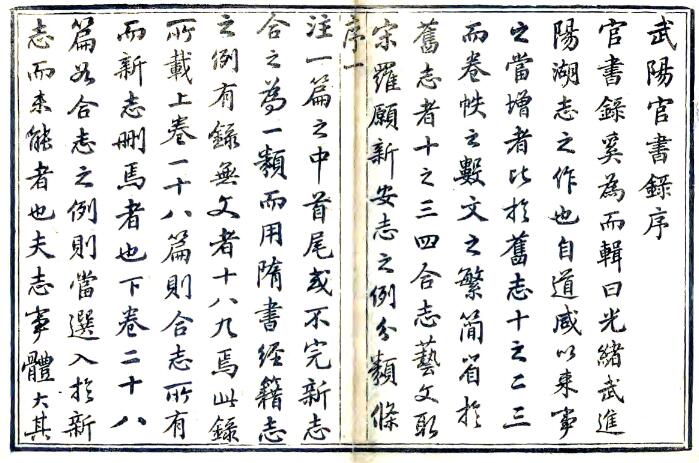 武陽官書錄序
官書錄奚為而輯曰光緒武進
陽湖志之作也自道咸以來事
之當增者比於舊志十之二三
而卷帙之數文之繁簡省於
舊志者十之三四合志藝文取
宋羅願新安志之例分類條
序一
注一篇之中首尾或不完新志
合之為一類而用隋書經籍志
之例有錄無文者十八九焉此錄
所載上卷一十八篇則合志所有
而新志刪焉者也下卷二十八
篇如合志之例則當選入於新
志而未能者也夫志事體大其